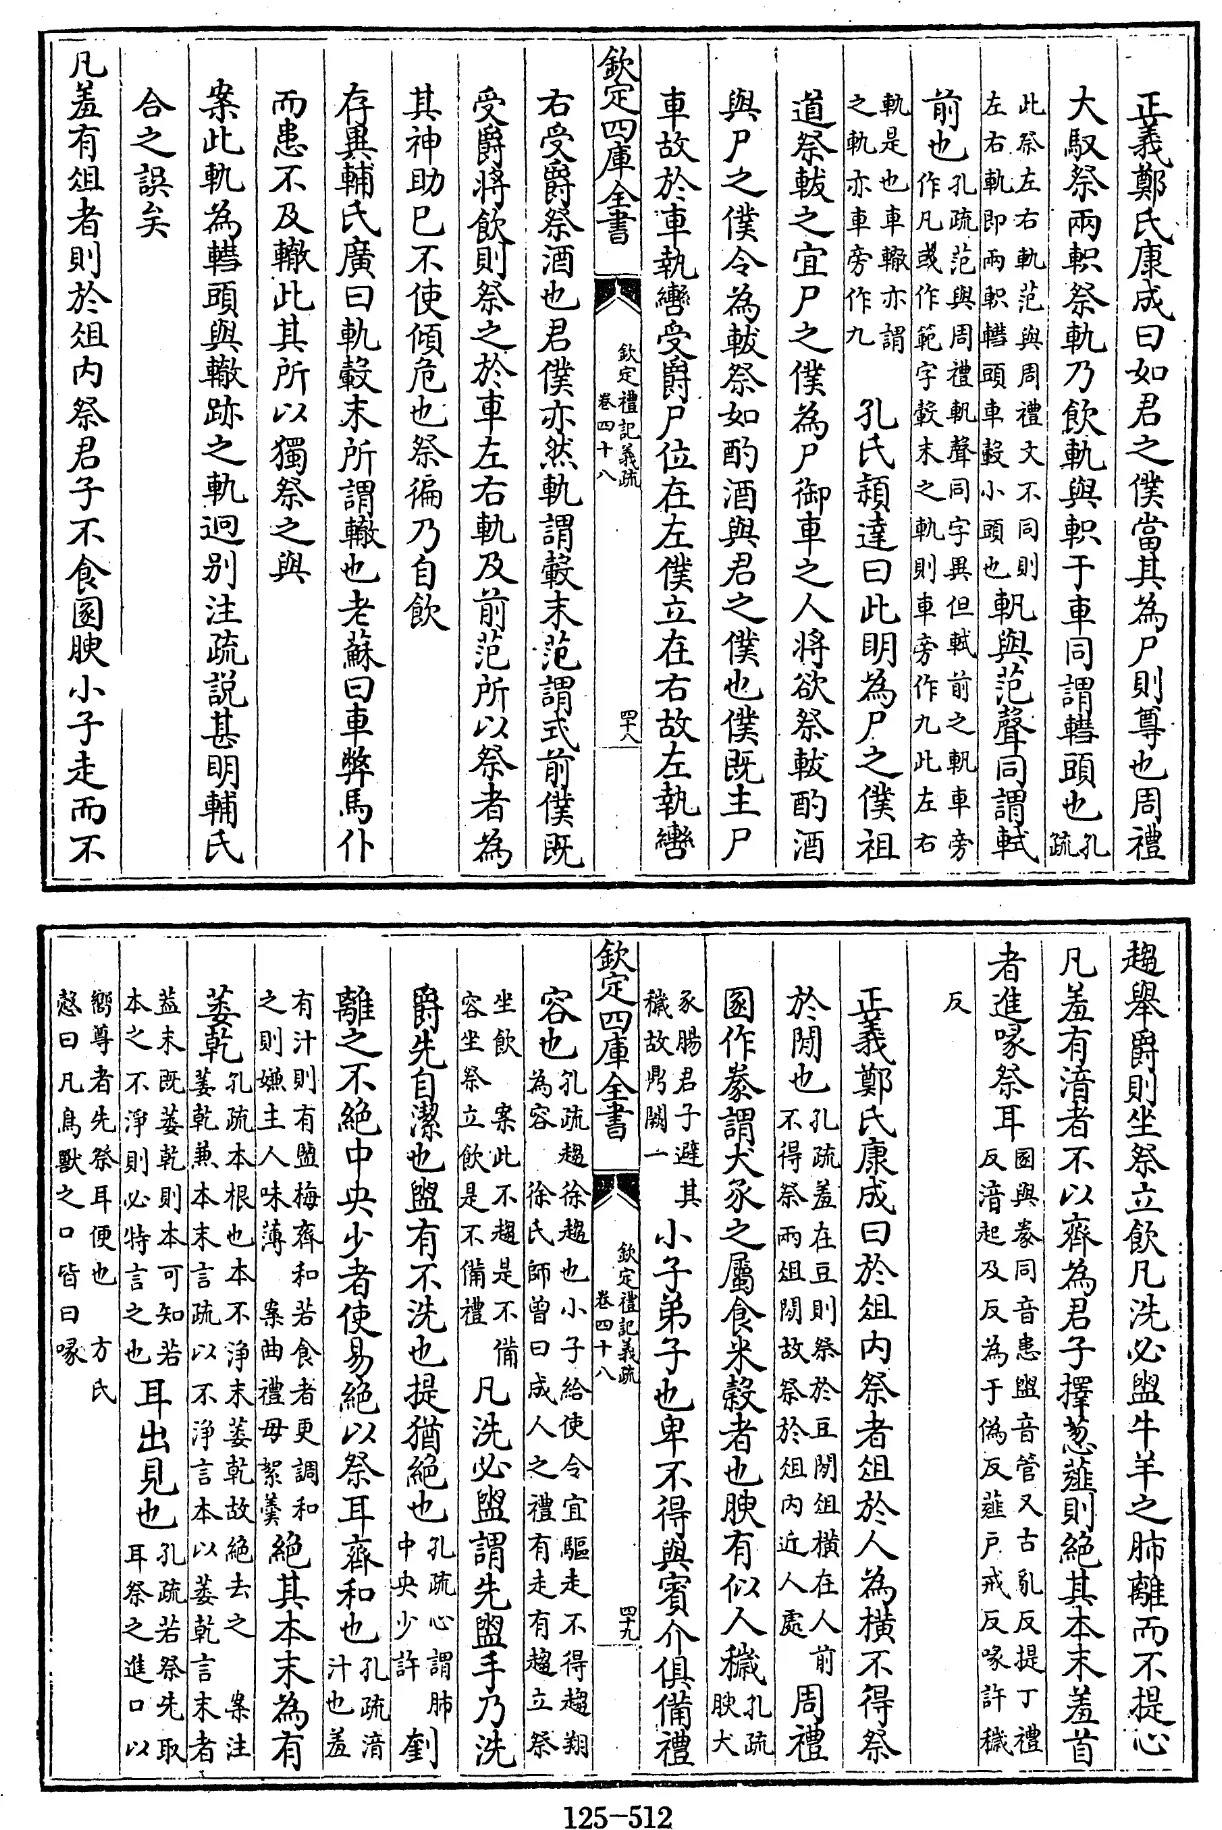 正義鄭氏康成曰如君之僕當其為尸則尊也周禮
大馭祭兩軹祭軌乃飲軌與軹于車同謂轊頭也孔疏
此祭左右軌范與周禮文不同則左右軌即兩軹轊頭車轂小頭也軓與范聲同謂軾
前也孔疏范與周禮軓聲同字異但軾前之軓車旁作凡或作範字轂末之軌則車旁作九此左右
軌是也車轍亦謂之軌亦車旁作九　孔氏穎達曰此明為尸之僕祖
道祭軷之宜尸之僕為尸御車之人將欲祭軷酌酒
與尸之僕令為軷祭如酌酒與君之僕也僕既主尸
車故於車執轡受爵尸位在左僕立在右故左執轡
欽定四庫全書　欽定禮記義疏　卷四十八　四十八
右受爵祭酒也君僕亦然軌謂轂末范謂式前僕既
受爵將飲則祭之於車左右軌及前范所以祭者為
其神助已不使傾危也祭徧乃自飲
存異輔氏廣曰軌轂末所謂轍也老蘇曰車弊馬仆
而患不及轍此其所以獨祭之與
案此軌為轊頭與轍跡之軌迥别注疏説甚明輔氏
合之誤矣
凡羞有俎者則於俎内祭君子不食圂腴小子走而不
趨舉爵則坐祭立飲凡洗必盥牛羊之肺離而不提心
凡羞有湆者不以齊為君子擇葱薤則絶其本末羞首
者進喙祭耳圂與豢同音患盥音管又古亂反提丁禮反湆起及反為于偽反薤户戒反喙許穢
反
正義鄭氏康成曰於俎内祭者俎於人為横不得祭
於閒也孔疏羞在豆則祭於豆閒俎横在人前不得祭兩俎閒故祭於俎内近人處　周禮
圂作豢謂犬豕之屬食米穀者也腴有似人穢孔疏腴犬
豕腸君子避其穢故鼎闕一　小子弟子也卑不得與賓介俱備禮
欽定四庫全書　欽定禮記義疏　卷四十八　四十九
容也孔疏趨徐趨也小子給使令宜驅走不得趨翔為容　徐氏師曾曰成人之禮有走有趨立祭
坐飲　案此不趨是不備容坐祭立飲是不備禮　凡洗必盥謂先盥手乃洗
爵先自潔也盥有不洗也提猶絶也孔疏心謂肺中央少許　刲
離之不絶中央少者使易絶以祭耳齊和也孔疏湆汁也羞
有汁則有鹽梅齊和若食者更調和之則嫌主人味薄　案曲禮毋絮羹絶其本末為有
萎乾孔疏本根也本不浄末萎乾故絶去之　案注萎乾兼本末言疏以不浄言本以萎乾言末者
蓋末既萎乾則本可知若本之不淨則必特言之也　耳出見也孔疏若祭先取耳祭之進口以
嚮尊者先祭耳便也　方氏慤曰凡鳥獸之口皆曰喙
125-512